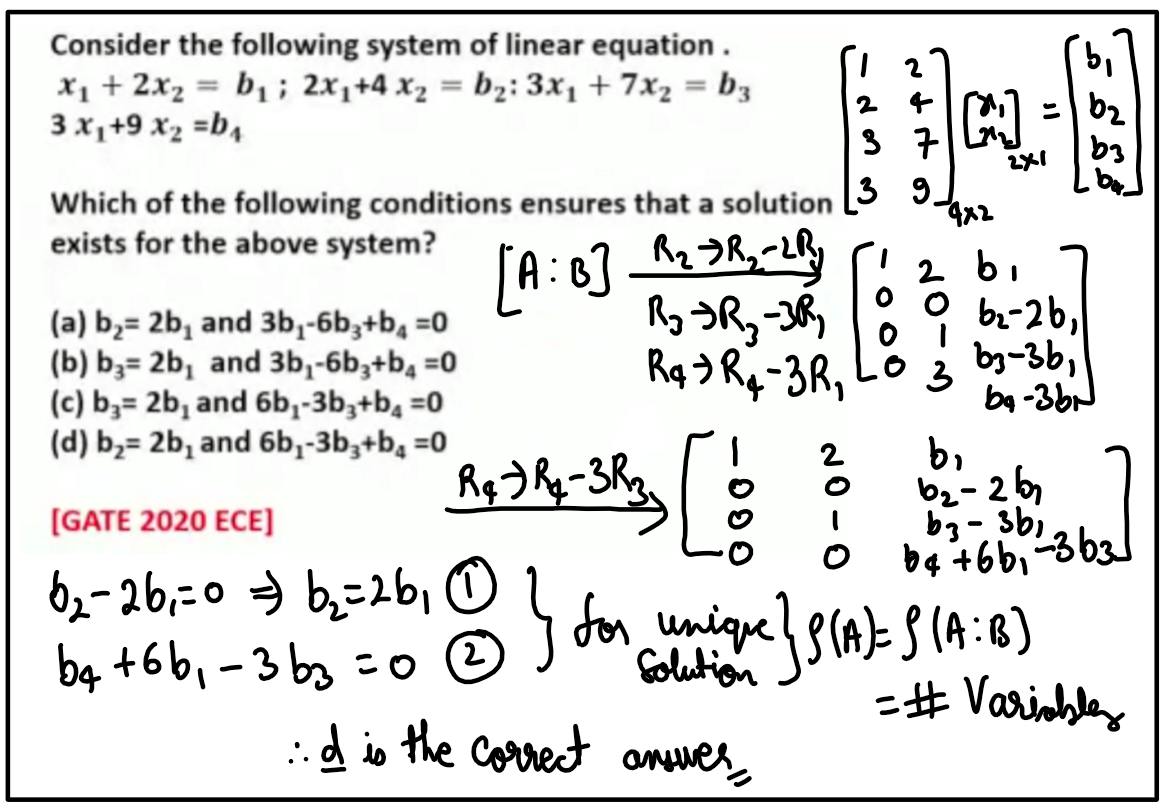 Consider the following system of linear equation .
x₁ + 2x₂ = b₁ ; 2x₁+4 x₂ = b₂: 3x₁ + 7x₂ = b₃
3 x₁+9 x₂ =b₄
[1 2; 2 4; 3 7; 3 9]₄ₓ₂ [x₁; x₂]₂ₓ₁ = [b₁; b₂; b₃; b₄]
Which of the following conditions ensures that a solution
exists for the above system?
(a) b₂= 2b₁ and 3b₁-6b₃+b₄ =0
(b) b₃= 2b₁ and 3b₁-6b₃+b₄ =0
(c) b₃= 2b₁ and 6b₁-3b₃+b₄ =0
(d) b₂= 2b₁ and 6b₁-3b₃+b₄ =0
[GATE 2020 ECE]
[A : B] R₂→R₂-2R₁
R₃→R₃-3R₁
R₄→R₄-3R₁
1 2 b₁
0 0 b₂-2b₁
0 1 b₃-3b₁
0 3 b₄-3b₁
R₄→R₄-3R₃
1 2 b₁
0 0 b₂-2b₁
0 1 b₃-3b₁
0 0 b₄+6b₁-3b₃
b₂-2b₁=0 ⇒ b₂=2b₁ ①
b₄+6b₁-3b₃=0 ②
} for unique
Solution } ρ(A)=ρ(A:B)
=# Variables
∴ d is the correct answer